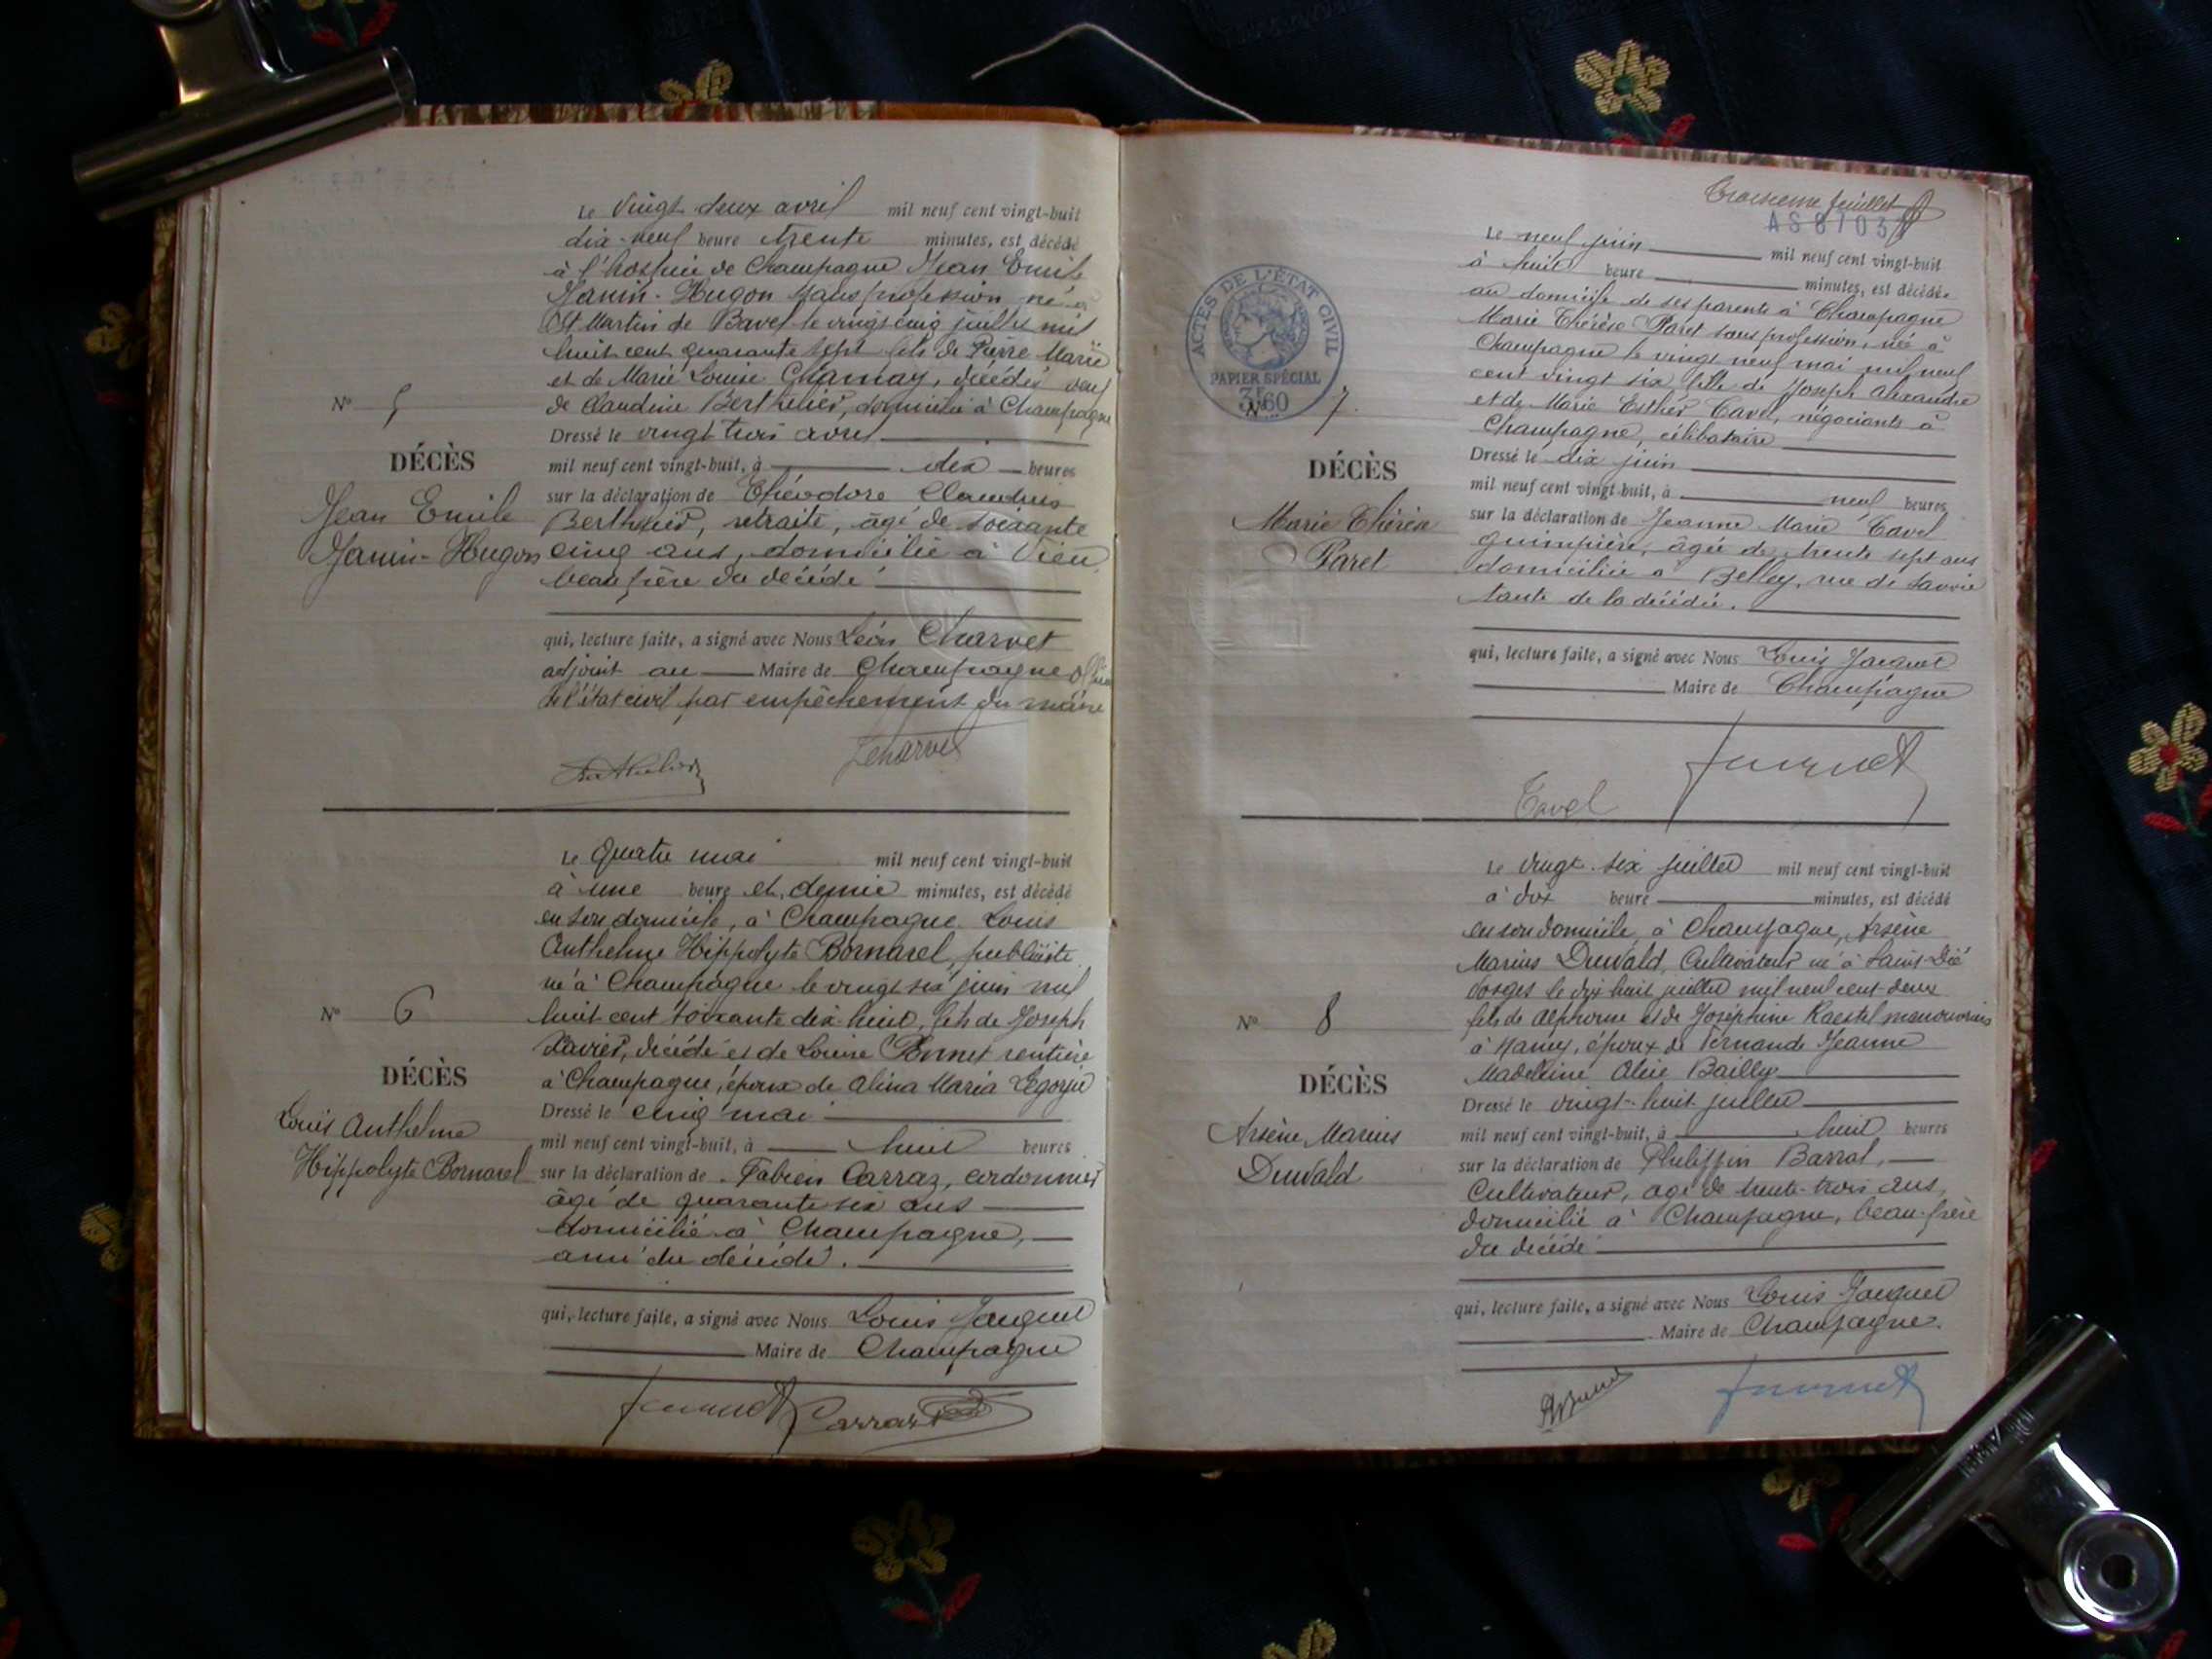 Le vingt deux avril mil neuf cent vingt-huit
dix-neuf heure trente minutes, est décédé
à l'hospice de Champagne Jean Emile
Janin-Hugon sans profession né à
St Martin de Bavel le vingt cinq juillet mil
huit cent quarante sept fils de Pierre Marie
et de Marie Louise Charnay, décédés veuf
de Claudine Berthelier, domicilié à Champagne
Dressé le vingt trois avril
mil neuf cent vingt-huit, à dix heures
sur la déclaration de Théodore Claudius
Berthelier, retraité, âgé de soixante
cinq ans, domicilié à Vieu
beau frère du décédé
qui, lecture faite, a signé avec Nous Léon Charvet
adjoint au Maire de Champagne
de l'état civil par empêchement du maire
Berthelier
LCharvet
N° 5
DÉCÈS
Jean Emile
Janin-Hugon
Le quatre mai mil neuf cent vingt-huit
à une heure et demie minutes, est décédé
en son domicile, à Champagne Louis
Anthelme Hippolyte Bornarel, publiciste
né à Champagne le vingt six juin mil
huit cent soixante dix huit, fils de Joseph
Xavier, décédé et de Louise Bonnet rentière
à Champagne, époux de Alina Maria
Dressé le cinq mai
mil neuf cent vingt-huit, à huit heures
sur la déclaration de Fabien Carraz, cordonnier
âgé de quarante six ans
domicilié à Champagne,
ami du décédé.
qui, lecture faite, a signé avec Nous Louis Jacquet
Maire de Champagne
Carraz
N° 6
DÉCÈS
Louis Anthelme
Hippolyte Bornarel
Troisième feuillet
AS87037
ACTES DE L'ÉTAT CIVIL
PAPIER SPÉCIAL
3F60
Le neuf juin mil neuf cent vingt-huit
à huit heure minutes, est décédée
au domicile de ses parents à Champagne
Marie Thérèse Paret sans profession, née à
Champagne le vingt neuf mai mil neuf
cent vingt six, fille de Joseph Alexandre
et de Marie Esther Tavel, négociants à
Champagne, célibataire
Dressé le dix juin
mil neuf cent vingt-huit, à neuf heures
sur la déclaration de Jeanne Marie Tavel
guimpière, âgée de trente sept ans
domiciliée à Belley, rue de Savoie
tante de la décédée.
qui, lecture faite, a signé avec Nous Louis Jacquet
Maire de Champagne
Tavel
N° 7
DÉCÈS
Marie Thérèse
Paret
Le vingt-six juillet mil neuf cent vingt-huit
à dix heure minutes, est décédé
en son domicile à Champagne, Arsène
Marius Duwald, Cultivateur né à Saint-Dié
Vosges le dix huit juillet mil neuf cent deux
fils de Alphonse et de Joséphine Kaestel manouvriers
à Nancy, époux de Fernande Jeanne
Madeleine Bailly
Dressé le vingt-huit juillet
mil neuf cent vingt-huit, à huit heures
sur la déclaration de Philippin Barral,
Cultivateur, âgé de trente-trois ans,
domicilié à Champagne, beau-frère
du décédé
qui, lecture faite, a signé avec Nous Louis Jacquet
Maire de Champagne
N° 8
DÉCÈS
Arsène Marius
Duwald